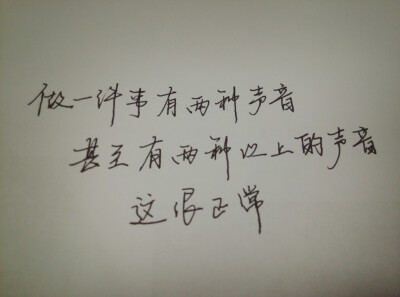 做一件事有两种声音
甚至有两种以上的声音
这很正常